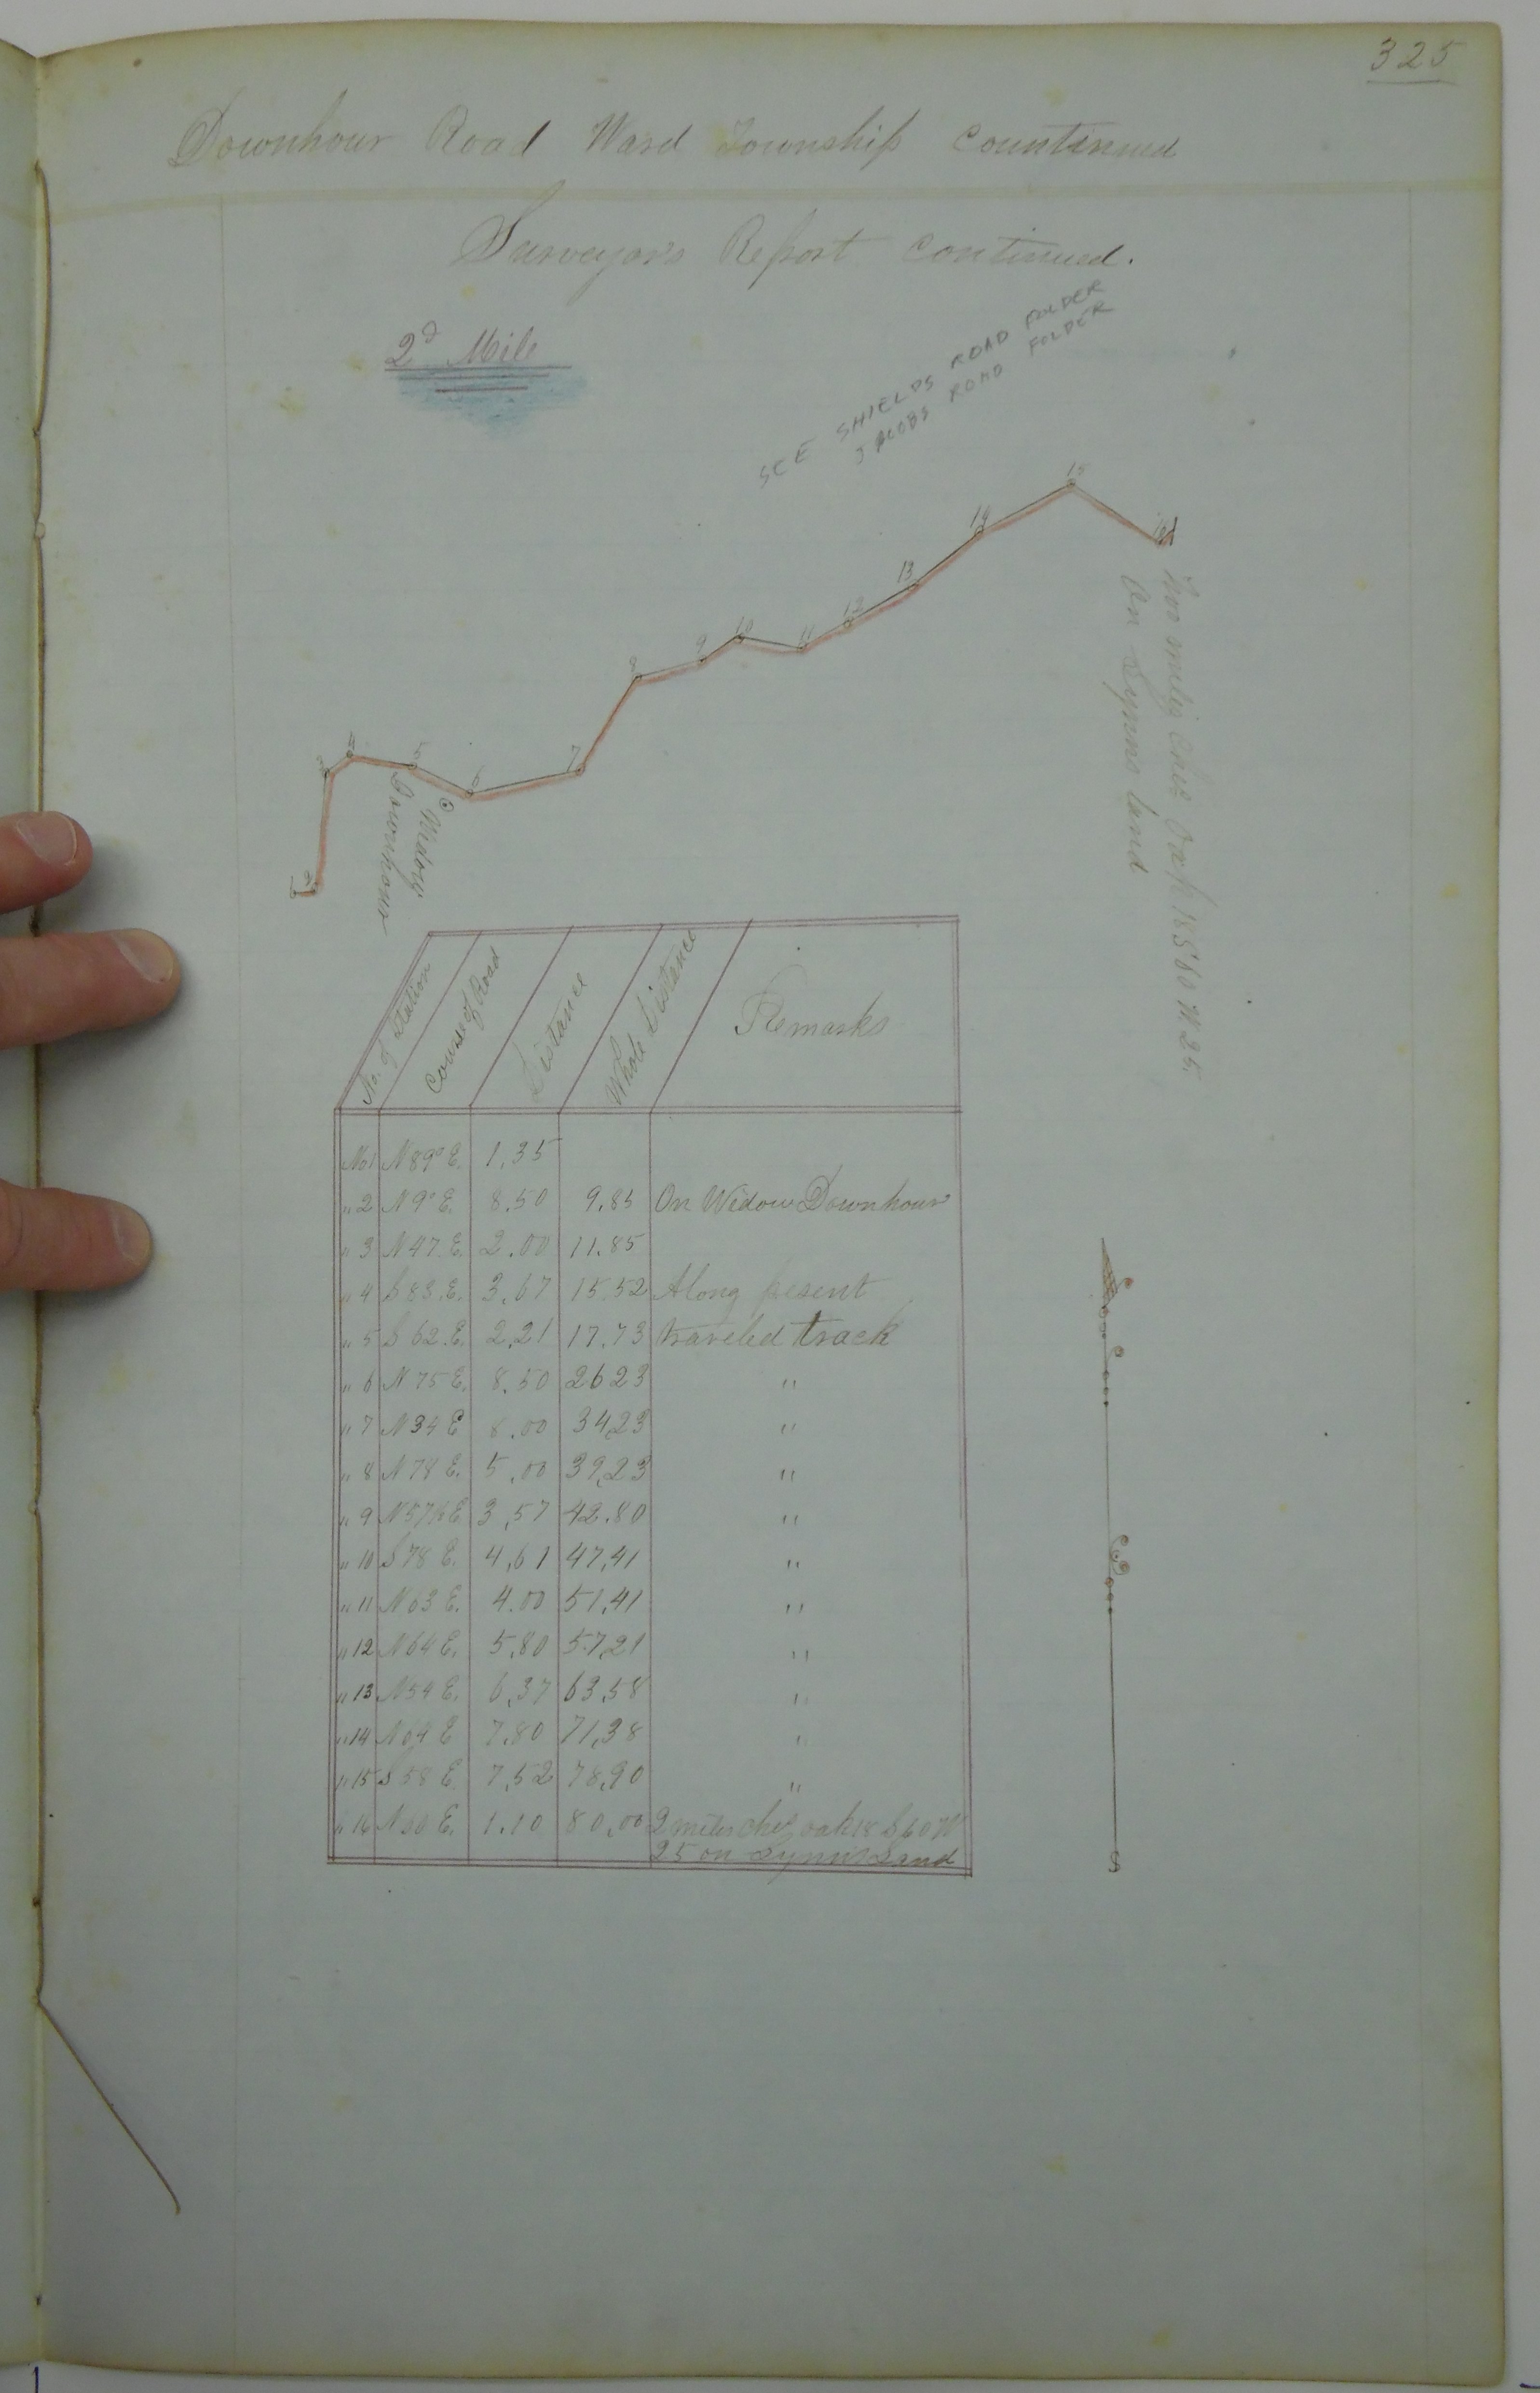 325
Downhour Road Ward Township Countinued
Surveyor's Report Continued.
2d Mile
SEE SHIELDS ROAD FOLDER
JACOBS ROAD FOLDER
1 2 3 4 5 6 7 8 9 10 11 12 13 14 15 16
Widow
Downhour
Two miles chest Oak 18 S 60 W 25.
On Lynns land
No. of Station Course of Road Distance Whole Distance Remarks
No 1 N 89° E. 1.35
" 2 N 9° E. 8.50 9.85 On Widow Downhour
" 3 N 47. E. 2.00 11.85
" 4 S 83. E. 3.67 15.52 Along present
" 5 S 62. E. 2.21 17.73 traveled track
" 6 N 75 E. 8.50 26 23 "
" 7 N 34 E 8.00 34,23 "
" 8 N 78 E. 5.00 39,23 "
" 9 N 57½ E 3,57 42.80 "
" 10 S 78 E. 4,61 47,41 "
" 11 N 63 E. 4.00 51,41 "
" 12 N 64 E. 5,80 57,21 "
" 13 N 54 E. 6,37 63,58 "
" 14 N 64 E 7.80 71,38 "
" 15 S 58 E 7,52 78,90 "
" 16 E. 1.10 80,00 2 miles ches oak 18 S 60 W
25 on Lynn's Land
S